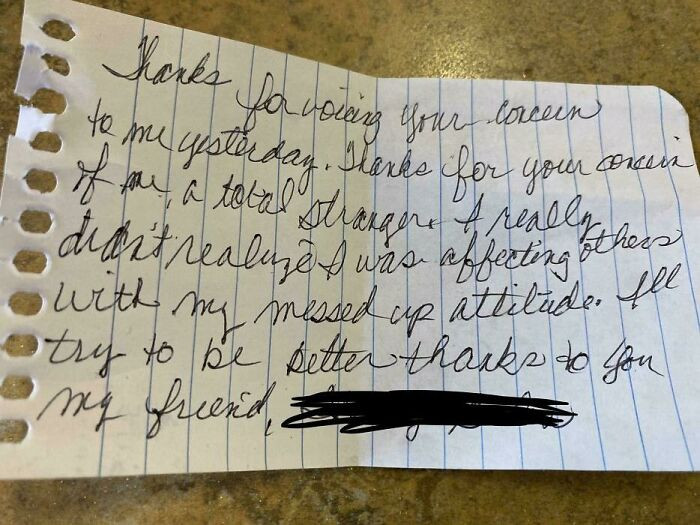 Thanks
for voicing your concern
to me yesterday. Thanks for your concern
of me, a total stranger. I really
didn't realize I was affecting others
with my messed up attitude. I'll
try to be better thanks to you
my friend,